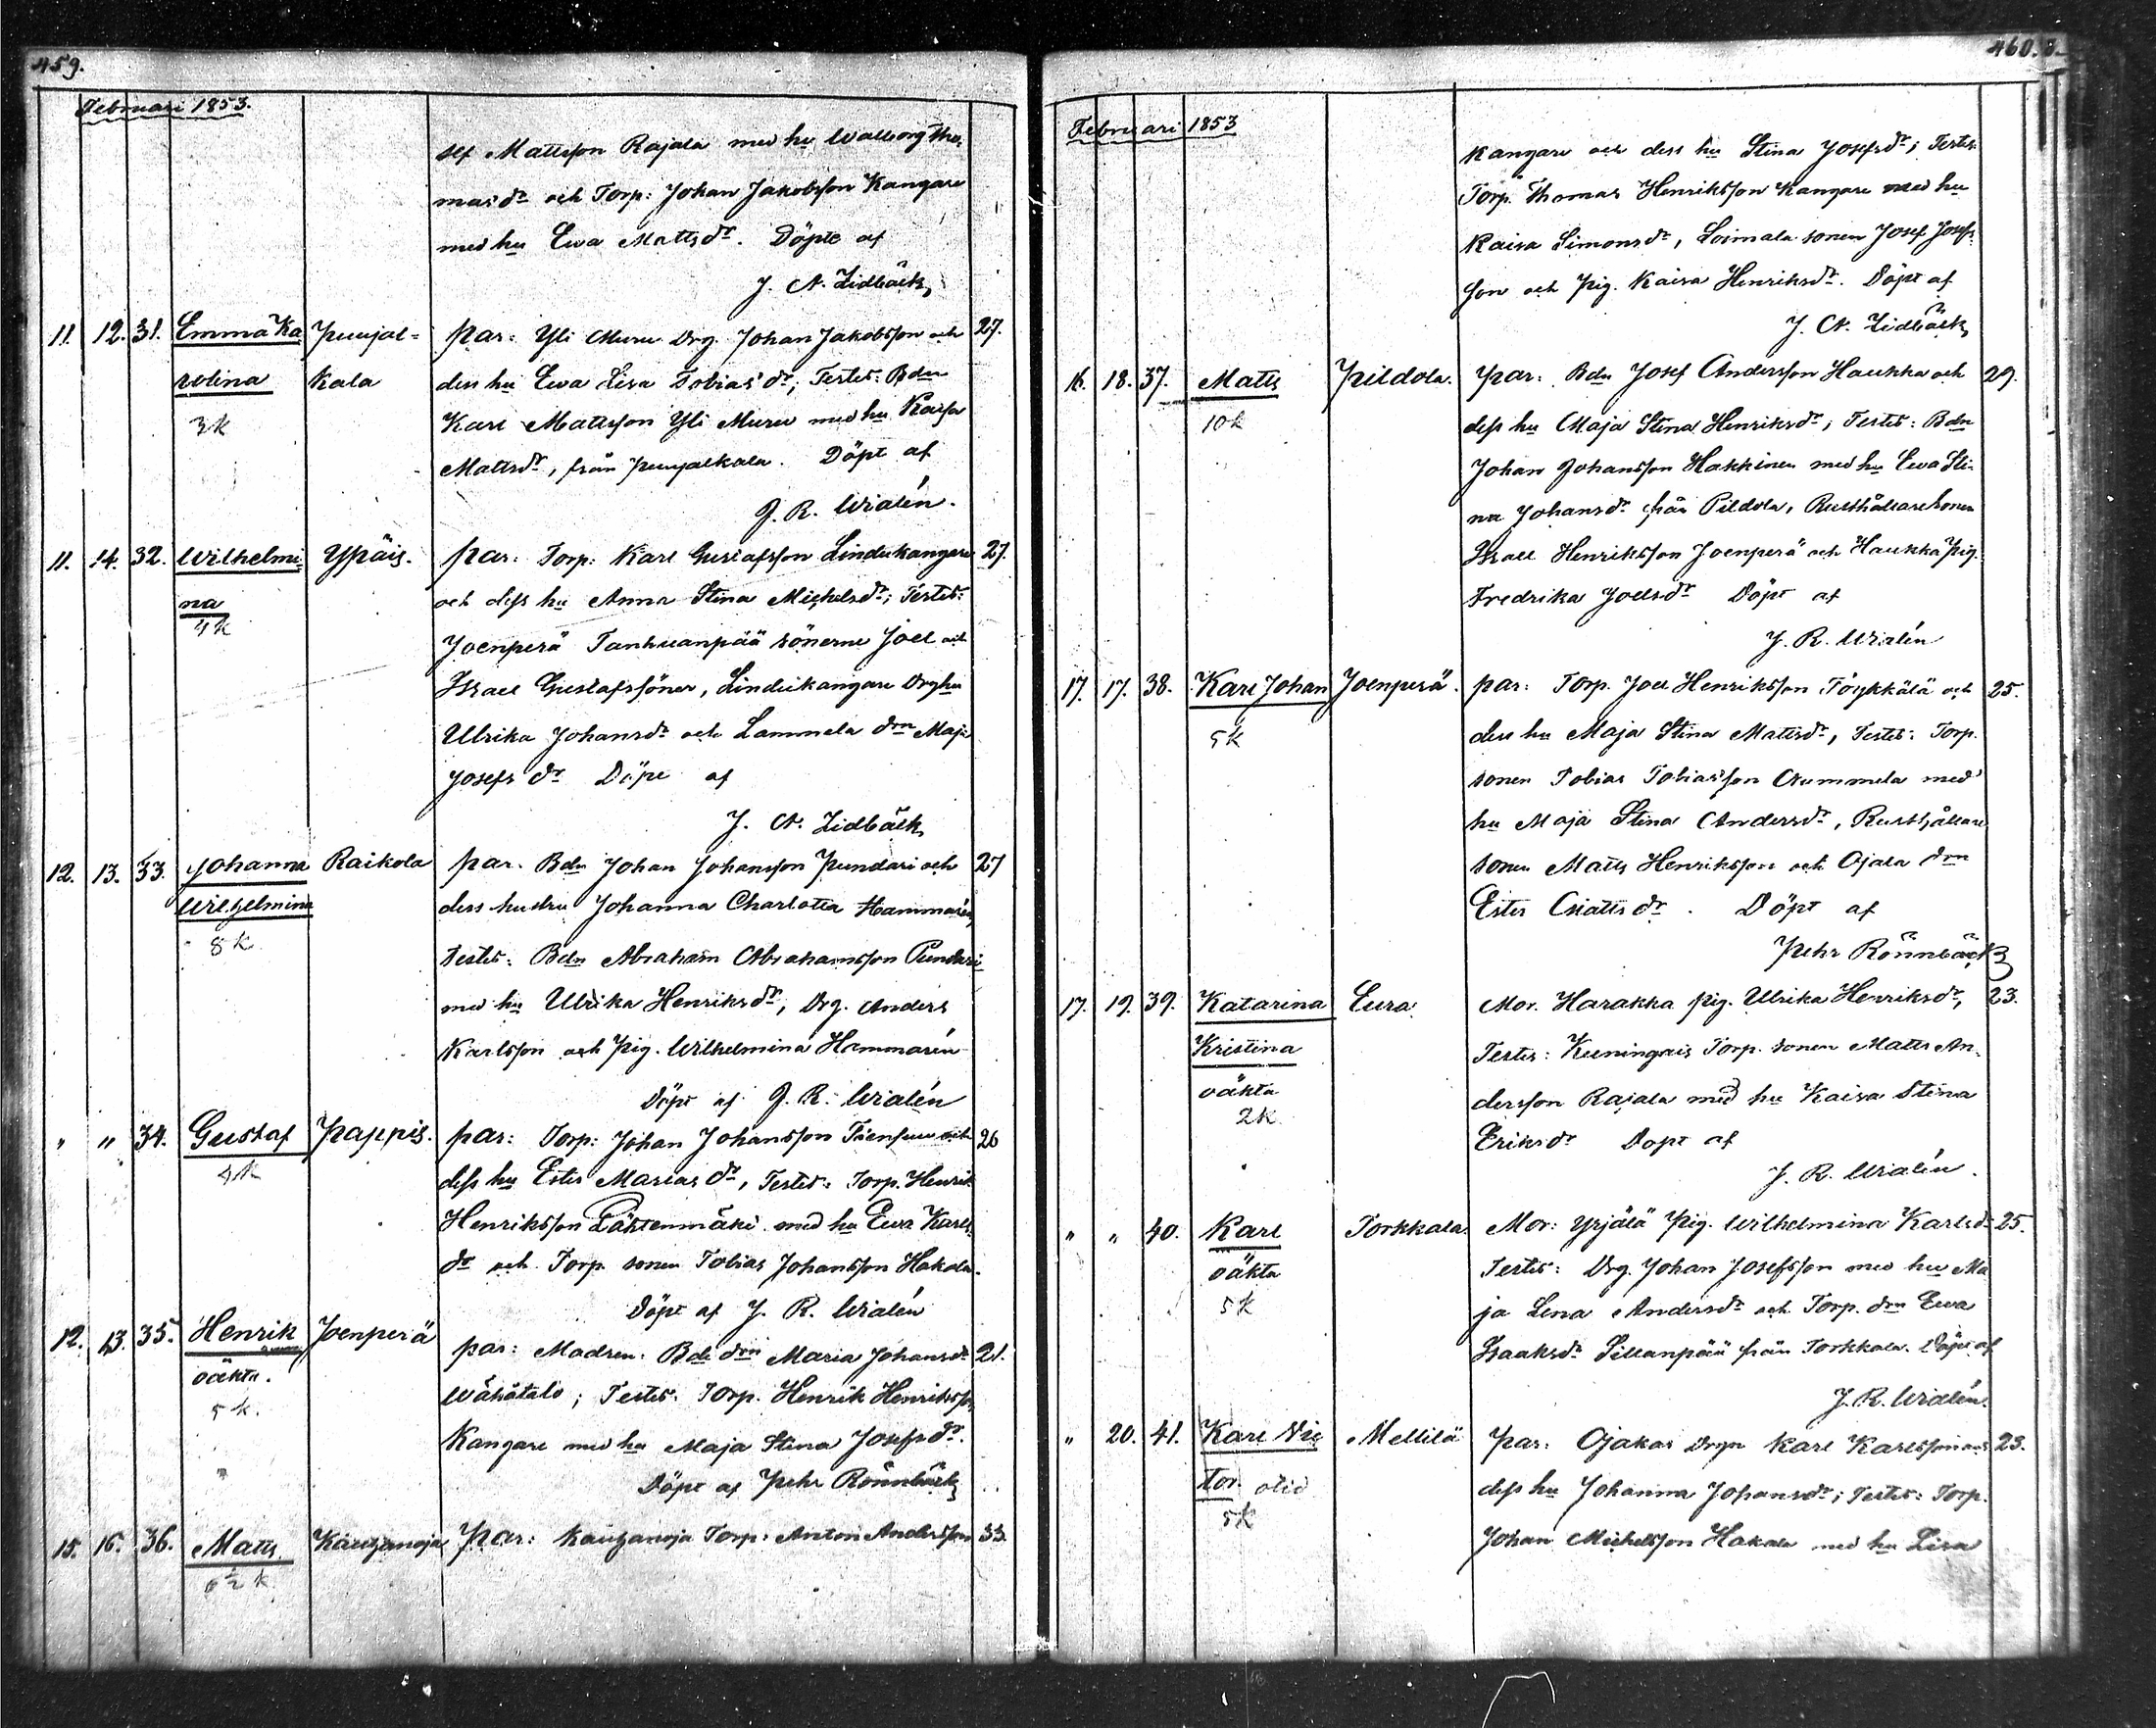 459.
Februari 1853.
sef Mattsson Rajala med hu Walborg Tho-
masdr och Torp: Johan Jakobsson Kangare
med hu Ewa Mattsdr. Döpte af
J. A. Lidbäck
11. 12. 31. Emma Ka- Punjal= par: Yli Muru Drg. Johan Jakobsson och 27.
rolina kala dess hu Ewa Lisa Tobiasdr; Testes: Bdn
3k Karl Mattsson Yli Muru med hu Kaisa
Mattsdr, från Punjalkala. Döpt af
J. R. Wialén.
11. 14. 32. Wilhelmi- Ypäis. par: Torp: Karl Gustafsson Lindukangare 27.
na och dess hu Anna Stina Michelsdr; Testes:
4k Joenperä Tanhuanpää sönerne Joel och
Israel Gustafssöner, Lindukangare Drghu
Ulrika Johansdr och Lammela drn Maja
Josefsdr Döpt af
J. A. Lidbäck
12. 13. 33. Johanna Raikola par. Bdn Johan Johansson Pundari och 27
Wilhelmina dess hustru Johanna Charlotta Hammarén,
8k testes: Bdn Abraham Abrahamsson Pundari
med hu Ulrika Henriksdr, Drg. Anders
Karlsson och Pig. Wilhelmina Hammarén
Döpt af J. R. Wialén
" " 34. Gustaf Pappis. par: Torp: Johan Johansson och 26
4k dess hu Ester Mariasdr, Testes: Torp. Henrik
Henriksson med hu Ewa Karls-
dr och Torp. sonen Tobias Johansson Hakala.
Döpt af J. R. Wialén
12. 13. 35. Henrik Joenperä par: Modren. Bde drn Maria Johansdr 21.
oäkta. Wähätalo; Testes. Torp. Henrik Henriksson
5k. Kangare med hu Maja Stina Josefsdr.
Döpt af Pehr Rönnbäck
15. 16. 36. Matts Kautzanoja par: Kautzanoja Torp: Anton Andersson 33.
6½ k
460.
Februari 1853
Kangare och dess hu Stina Josefsdr; Testes:
Torp. Thomas Henriksson Kangare med hu
Kaisa Simonsdr, Loimala sonen Josef Josefs-
son och Pig. Kaisa Henriksdr. Döpt af
J. A. Lidbäck
16. 18. 37. Matts Pildola. par: Bdn Josef Andersson Haukka och 29.
10k dess hu Maja Stina Henriksdr; Testes: Bdn
Johan Johansson Hakkinen med hu Ewa Sti-
na Johansdr från Pildola, Rusthållaresonen
Israel Henriksson Joenperä och Haukka Pig.
Fredrika Joelsdr Döpt af
J. R. Wialén
17. 17. 38. Karl Johan Joenperä. par: Torp. Joel Henriksson Töykkälä och 25.
5k dess hu Maja Stina Mattsdr, Testes: Torp.
sonen Tobias Tobiasson med
hu Maja Stina Andersdr, Rusthållare
sonen Matts Henriksson och Ojala drn
Ester Mattsdr. Döpt af
Pehr Rönnbäck
17. 19. 39. Katarina Eura. Mor. Harakka pig. Ulrika Henriksdr, 23.
Kristina Testes: Kuningais Torp. sonen Matts An-
oäkta dersson Rajala med hu Kaisa Stina
2k. Eriksdr Döpt af
J. R. Wialén.
" " 40. Karl Torkkala. Mor: Yrjälä Pig. Wilhelmina Karlsdr 25.
oäkta Testes: Drg. Johan Josefsson med hu Ma
5k ja Lena Andersdr och Torp. drn Ewa
Isaksdr Sillanpää från Torkkala. Döpt af
J. R. Wialén.
" 20. 41. Karl Vic Mellilä par: Ojakas Drgn Karl Karlsson och 23.
tor. dess hu Johanna Johansdr; Testes: Torp.
5k Johan Michelsson Hakala med hu Lisa